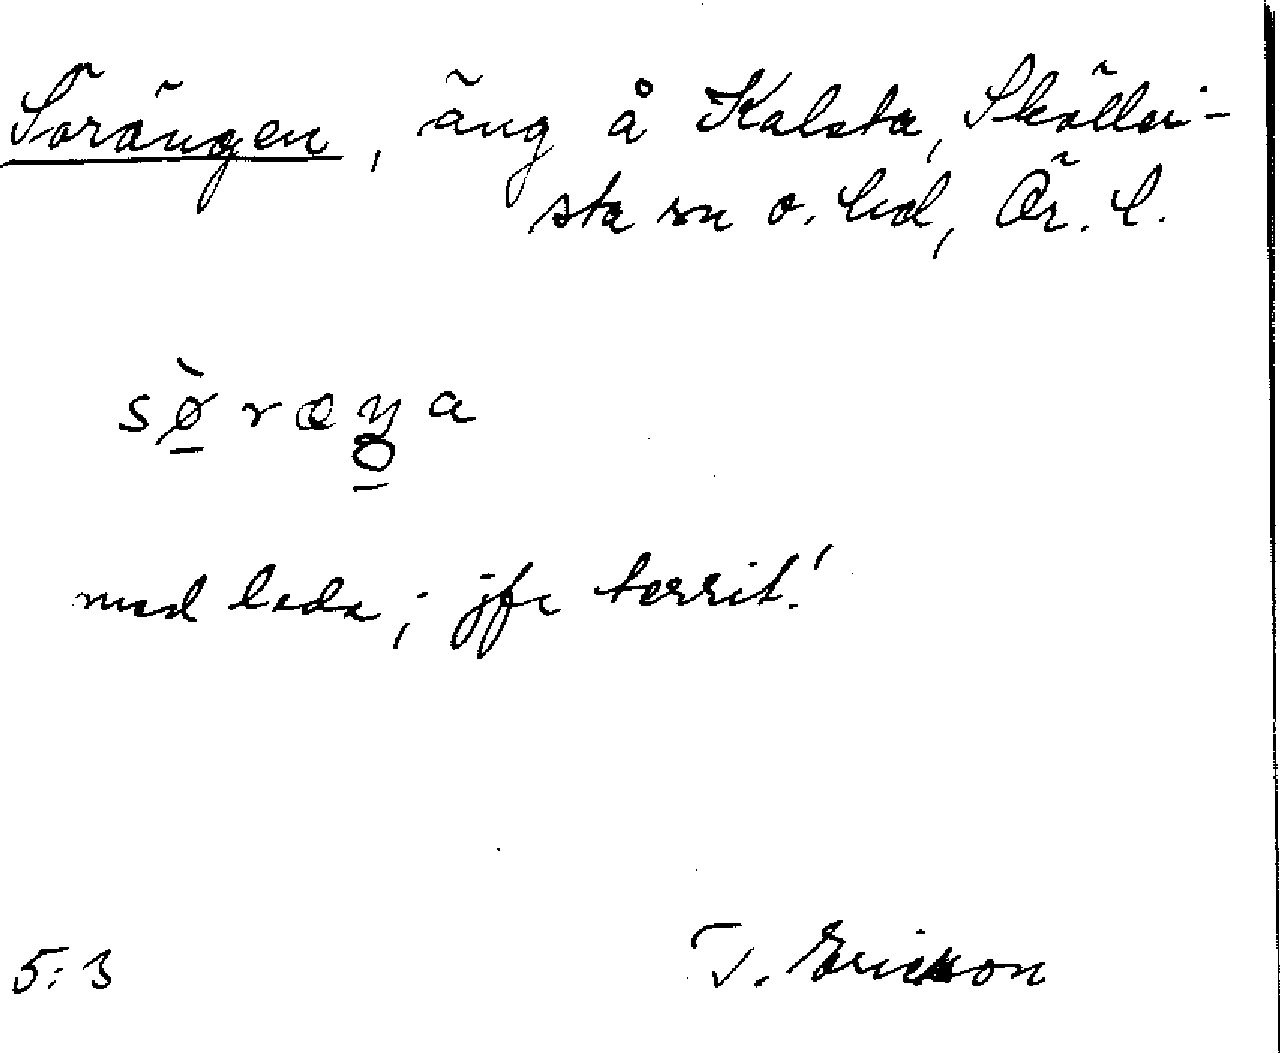 Sörängen, äng å Kalsta, Sköllersta
sn o. hd, Ör. l.
sø̀ræŋa
med lada; jfr territ.!
5:3
T. Ericsson